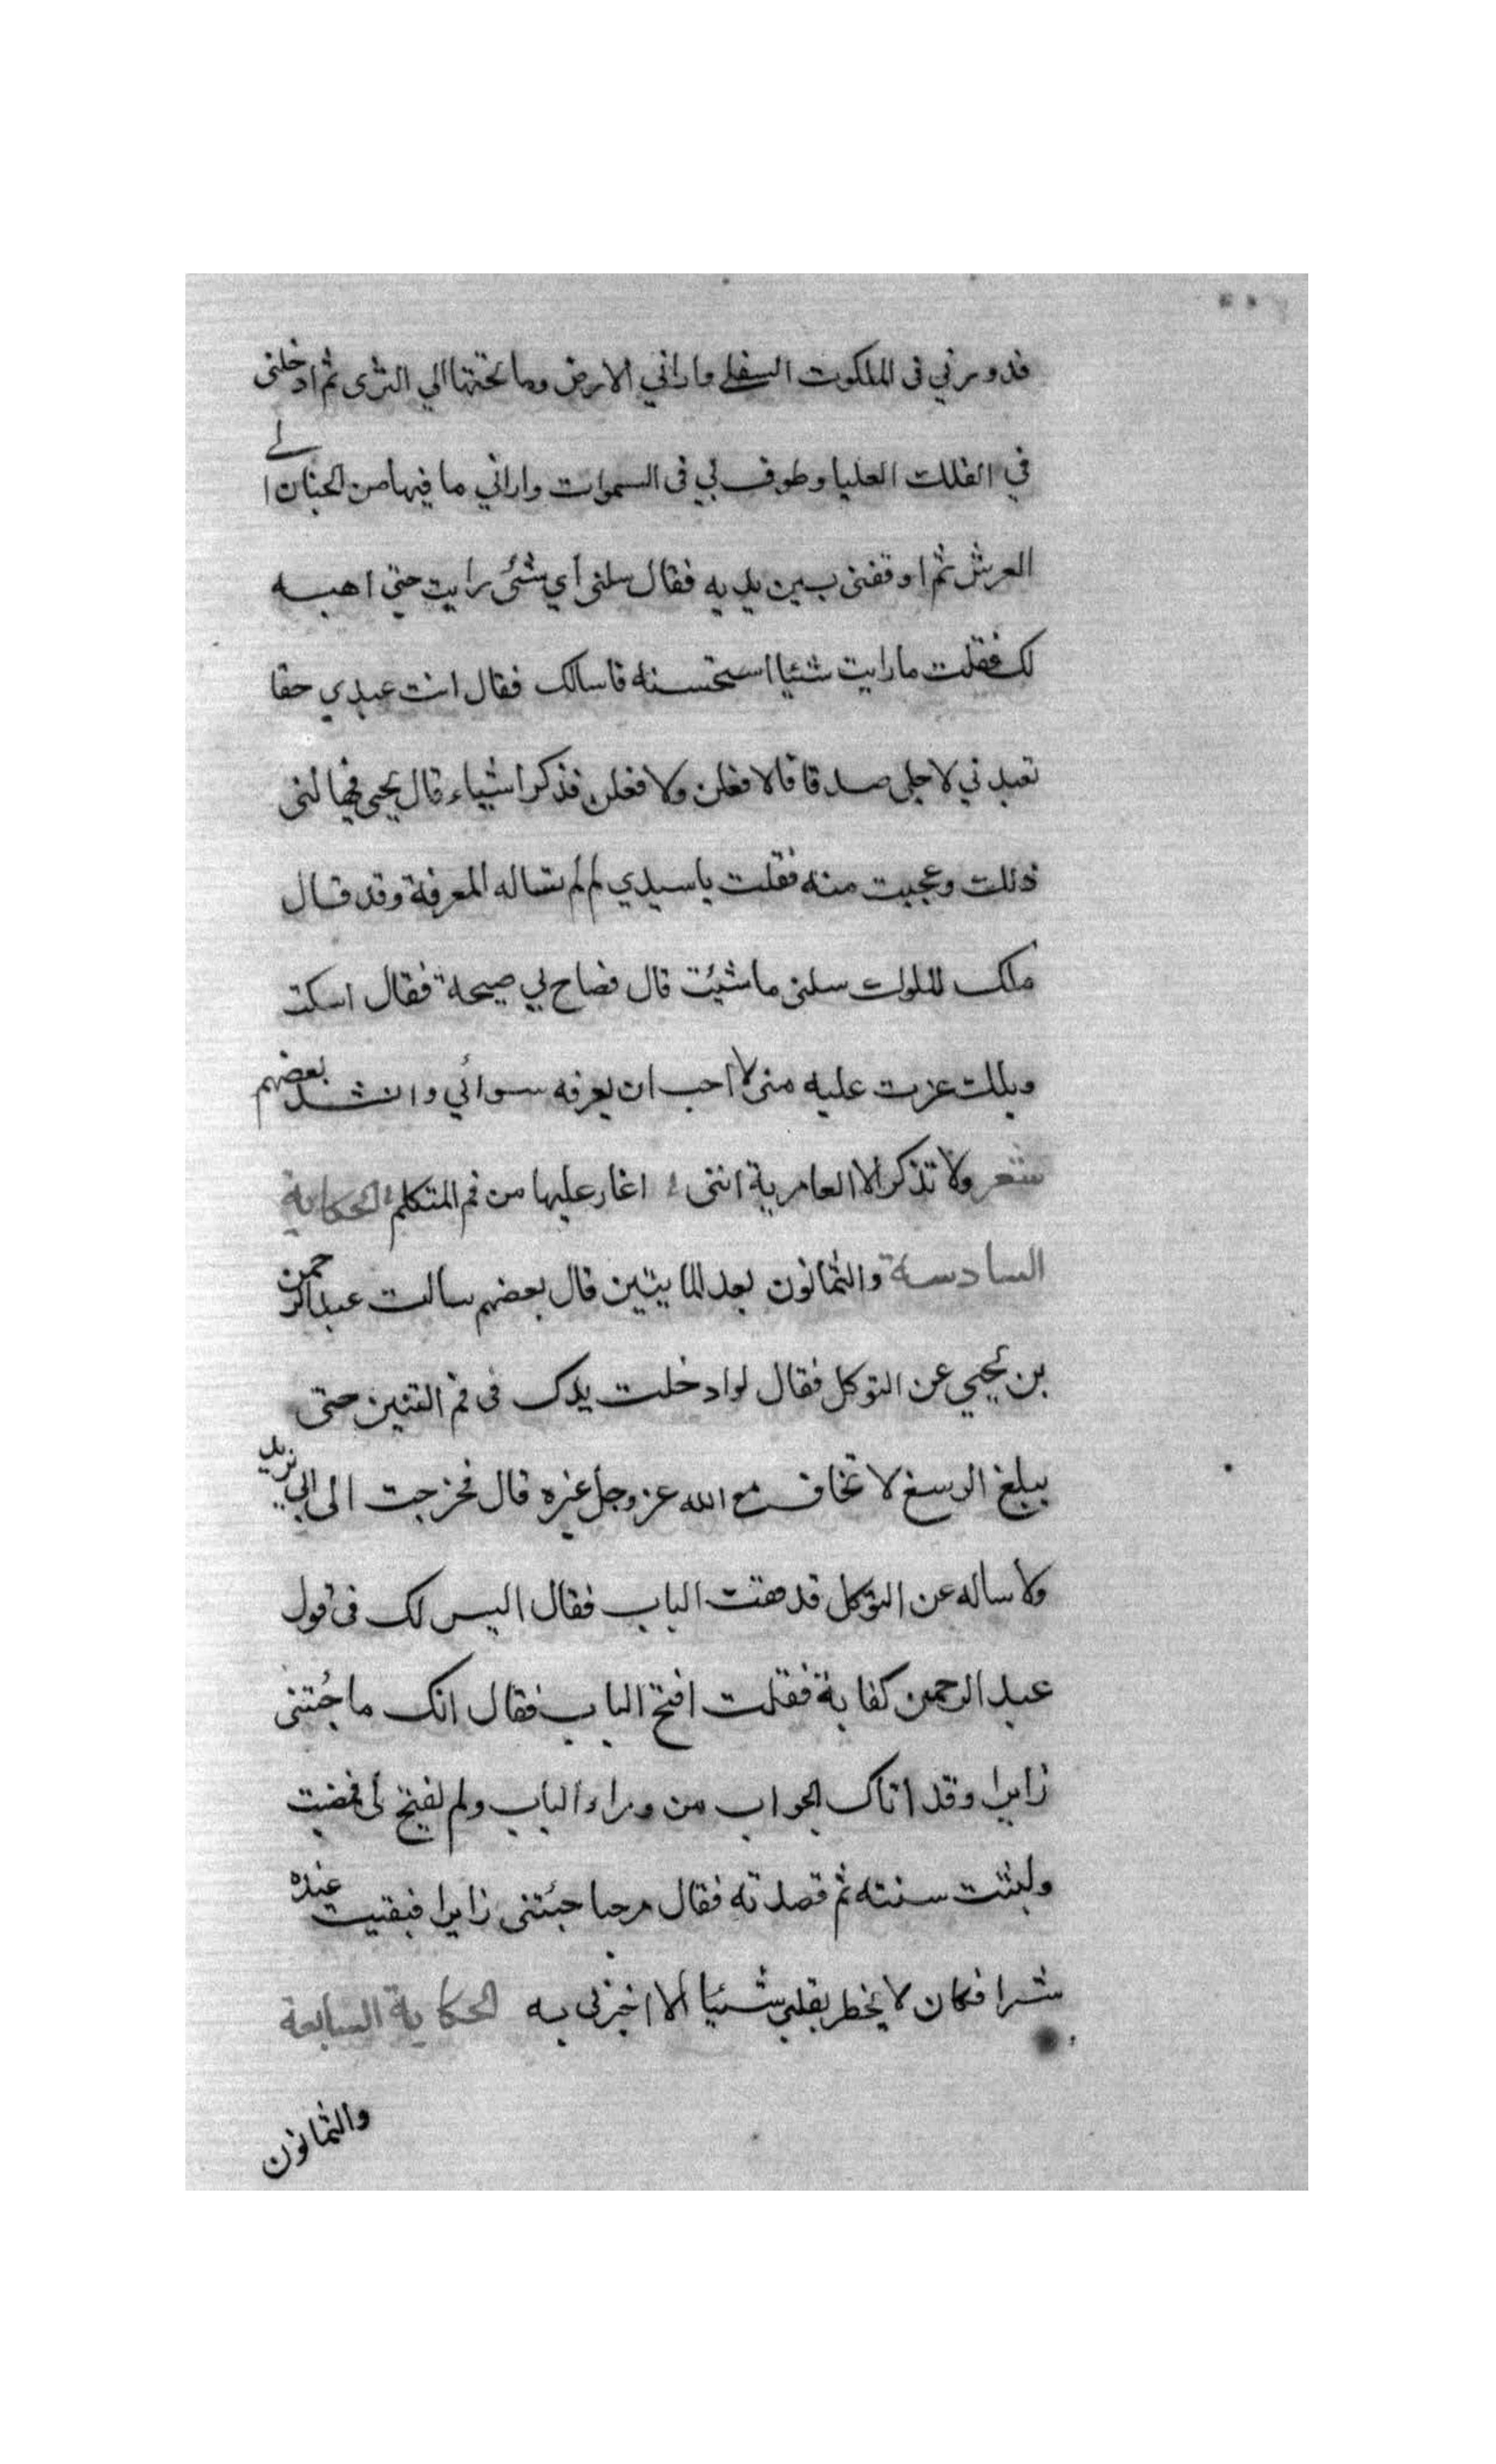 فدورني في الملكوت السفلي واراني الارض وما تحتها الي الثرى ثم ادخلني
في الفلك العليا وطوف بي في السموات واراني ما فيها من الجنان الى
العرش ثم اوقفني بين يديه فقال سلني أي شئ رايت حتي اهبه
لك فقلت ما رايت شئيا استحسنه فاسالك فقال انت عبدي حقا
تعبدني لاجلي صدقا فالافعلن ولافعلن فذكر اشياء قال يحيي فهالني
ذلك وعجبت منه فقلت ياسيدي لم لم تساله المعرفة وقد قال
ملك الملوك سلني ما شئت قال فصاح بي صيحة فقال اسكت
ويلك غرت عليه مني لا احب ان يعرفه سوائي وانشد بعضهم
شعر ولا تذكر الا العامرية انني اغار عليها من فم المتكلم الحكاية
السادسة والثمانون بعد المايتين قال بعضهم سالت عبدالرحمن
بن يحيي عن التوكل فقال لو ادخلت يدك في فم التنين حتى
يبلغ الرسغ لا تخاف مع الله عز وجل غيره قال فخرجت الى ابي يزيد
ولاساله عن التوكل فدققت الباب فقال اليس لك في قول
عبد الرحمن كفاية فقلت افتح الباب فقال انك ما جئتني
زايرا وقد اتاك الجواب من وراء الباب ولم يفتح لي فمضيت
ولبثت سنته ثم قصدته فقال مرحبا جئتني زايرا فبقيت عنده
شهرا فكان لا يخطر بقلبي شئيا الا اخبرني به الحكاية السابعة
والثمانون